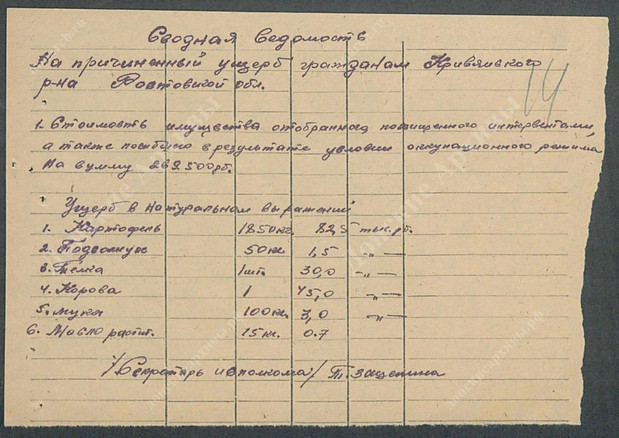 Сводная ведомость
14
На причиненный ущерб гражданам Кривянского
р-на Ростовской обл.
1. Стоимость имущества отобранного похищенного интервентами,
а также погибшего в результате условий оккупационного режима
На сумму 269.500рб.
Ущерб в натуральном выражений
1. Картофель 1850кг. 82,5 тыс.рб.
2. Подсолнух 50кг 1,5 -"-
3. Телка 1шт. 30,0 -"-
4. Корова 1 45,0 -"-
5. мука 100кг. 3,0 -"-
6. Масло растит. 15кг. 0.7
/Секретарь исполкома/